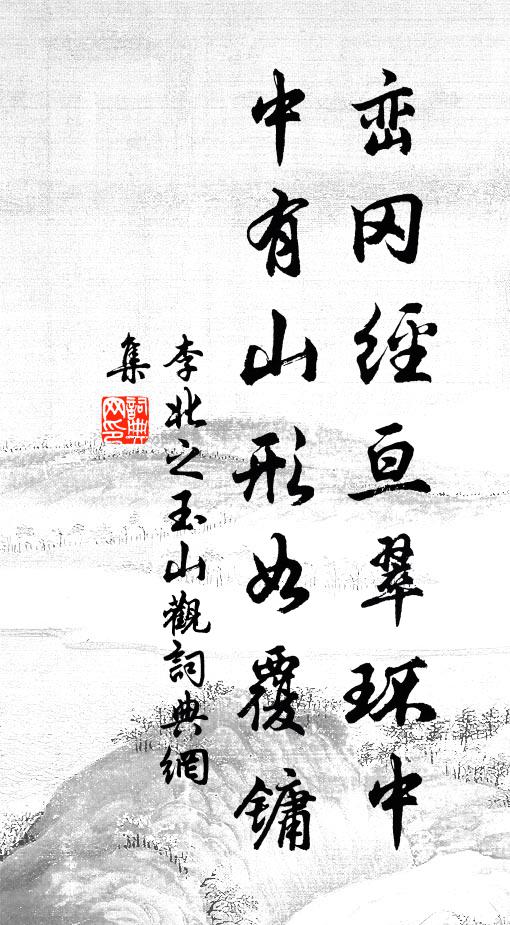 峦冈经亘翠环中
中有山形如覆镛
李壮之玉山觀詞典網
集
詞典網印